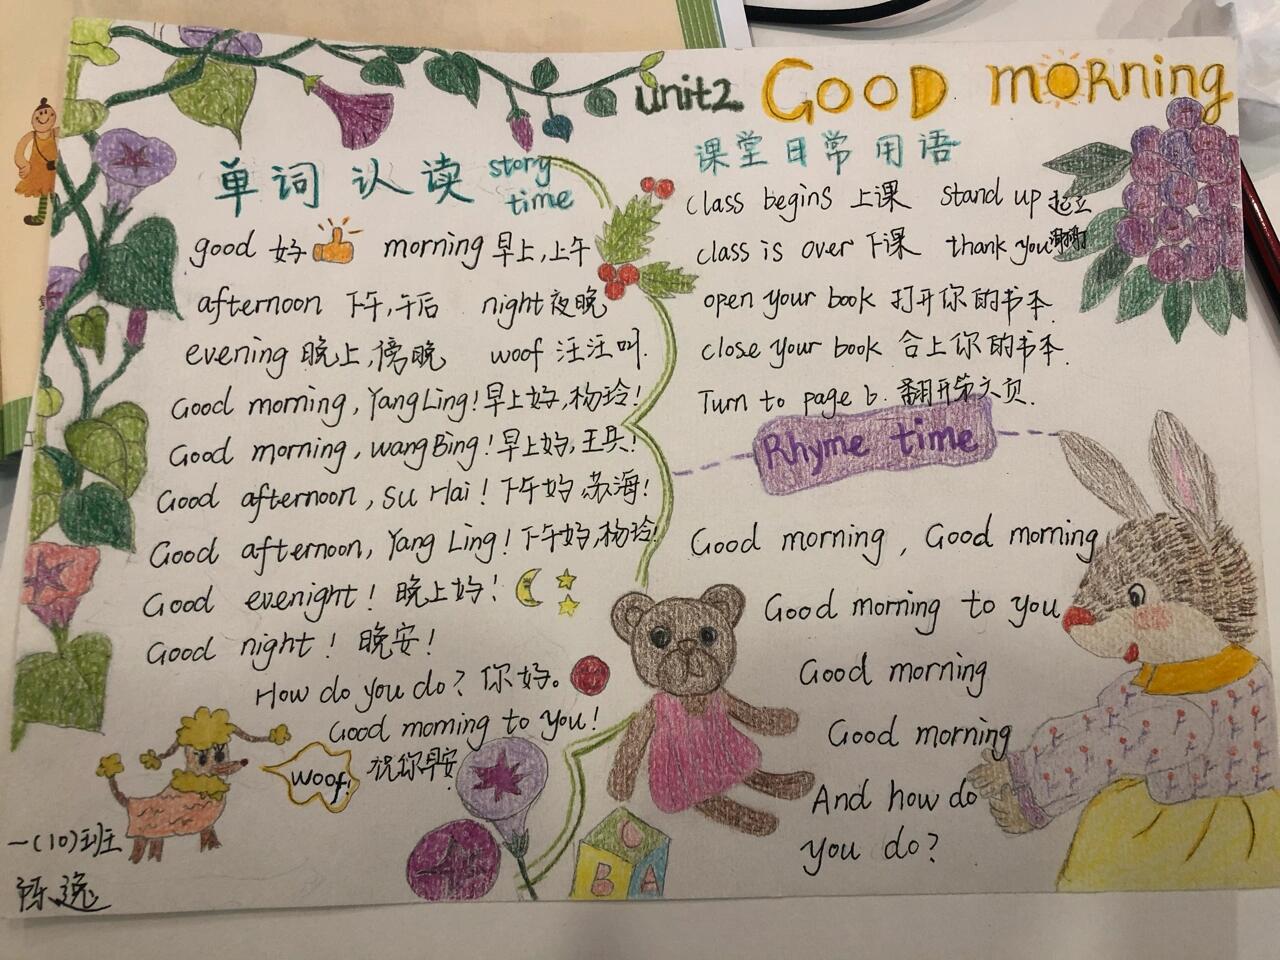 unit2 GOOD mORning
单词认读 story time
good 好 morning 早上,上午
afternoon 下午,午后 night 夜晚
evening 晚上,傍晚 woof 汪汪叫.
Good morning, Yang Ling! 早上好,杨玲!
Good morning, wang Bing! 早上好,王兵!
Good afternoon, Su Hai! 下午好,苏海!
Good afternoon, Yang Ling! 下午好,杨玲!
Good evenight! 晚上好!
Good night! 晚安!
How do you do? 你好。
Good morning to you!
祝你早安
woof!
一(10)班
陈逸
课堂日常用语
class begins 上课 stand up 起立
class is over 下课 thank you 谢谢
open your book 打开你的书本.
close your book 合上你的书本.
Turn to page 6. 翻开第六页.
Rhyme time
Good morning, Good morning
Good morning to you
Good morning
Good morning
And how do
you do?
B A